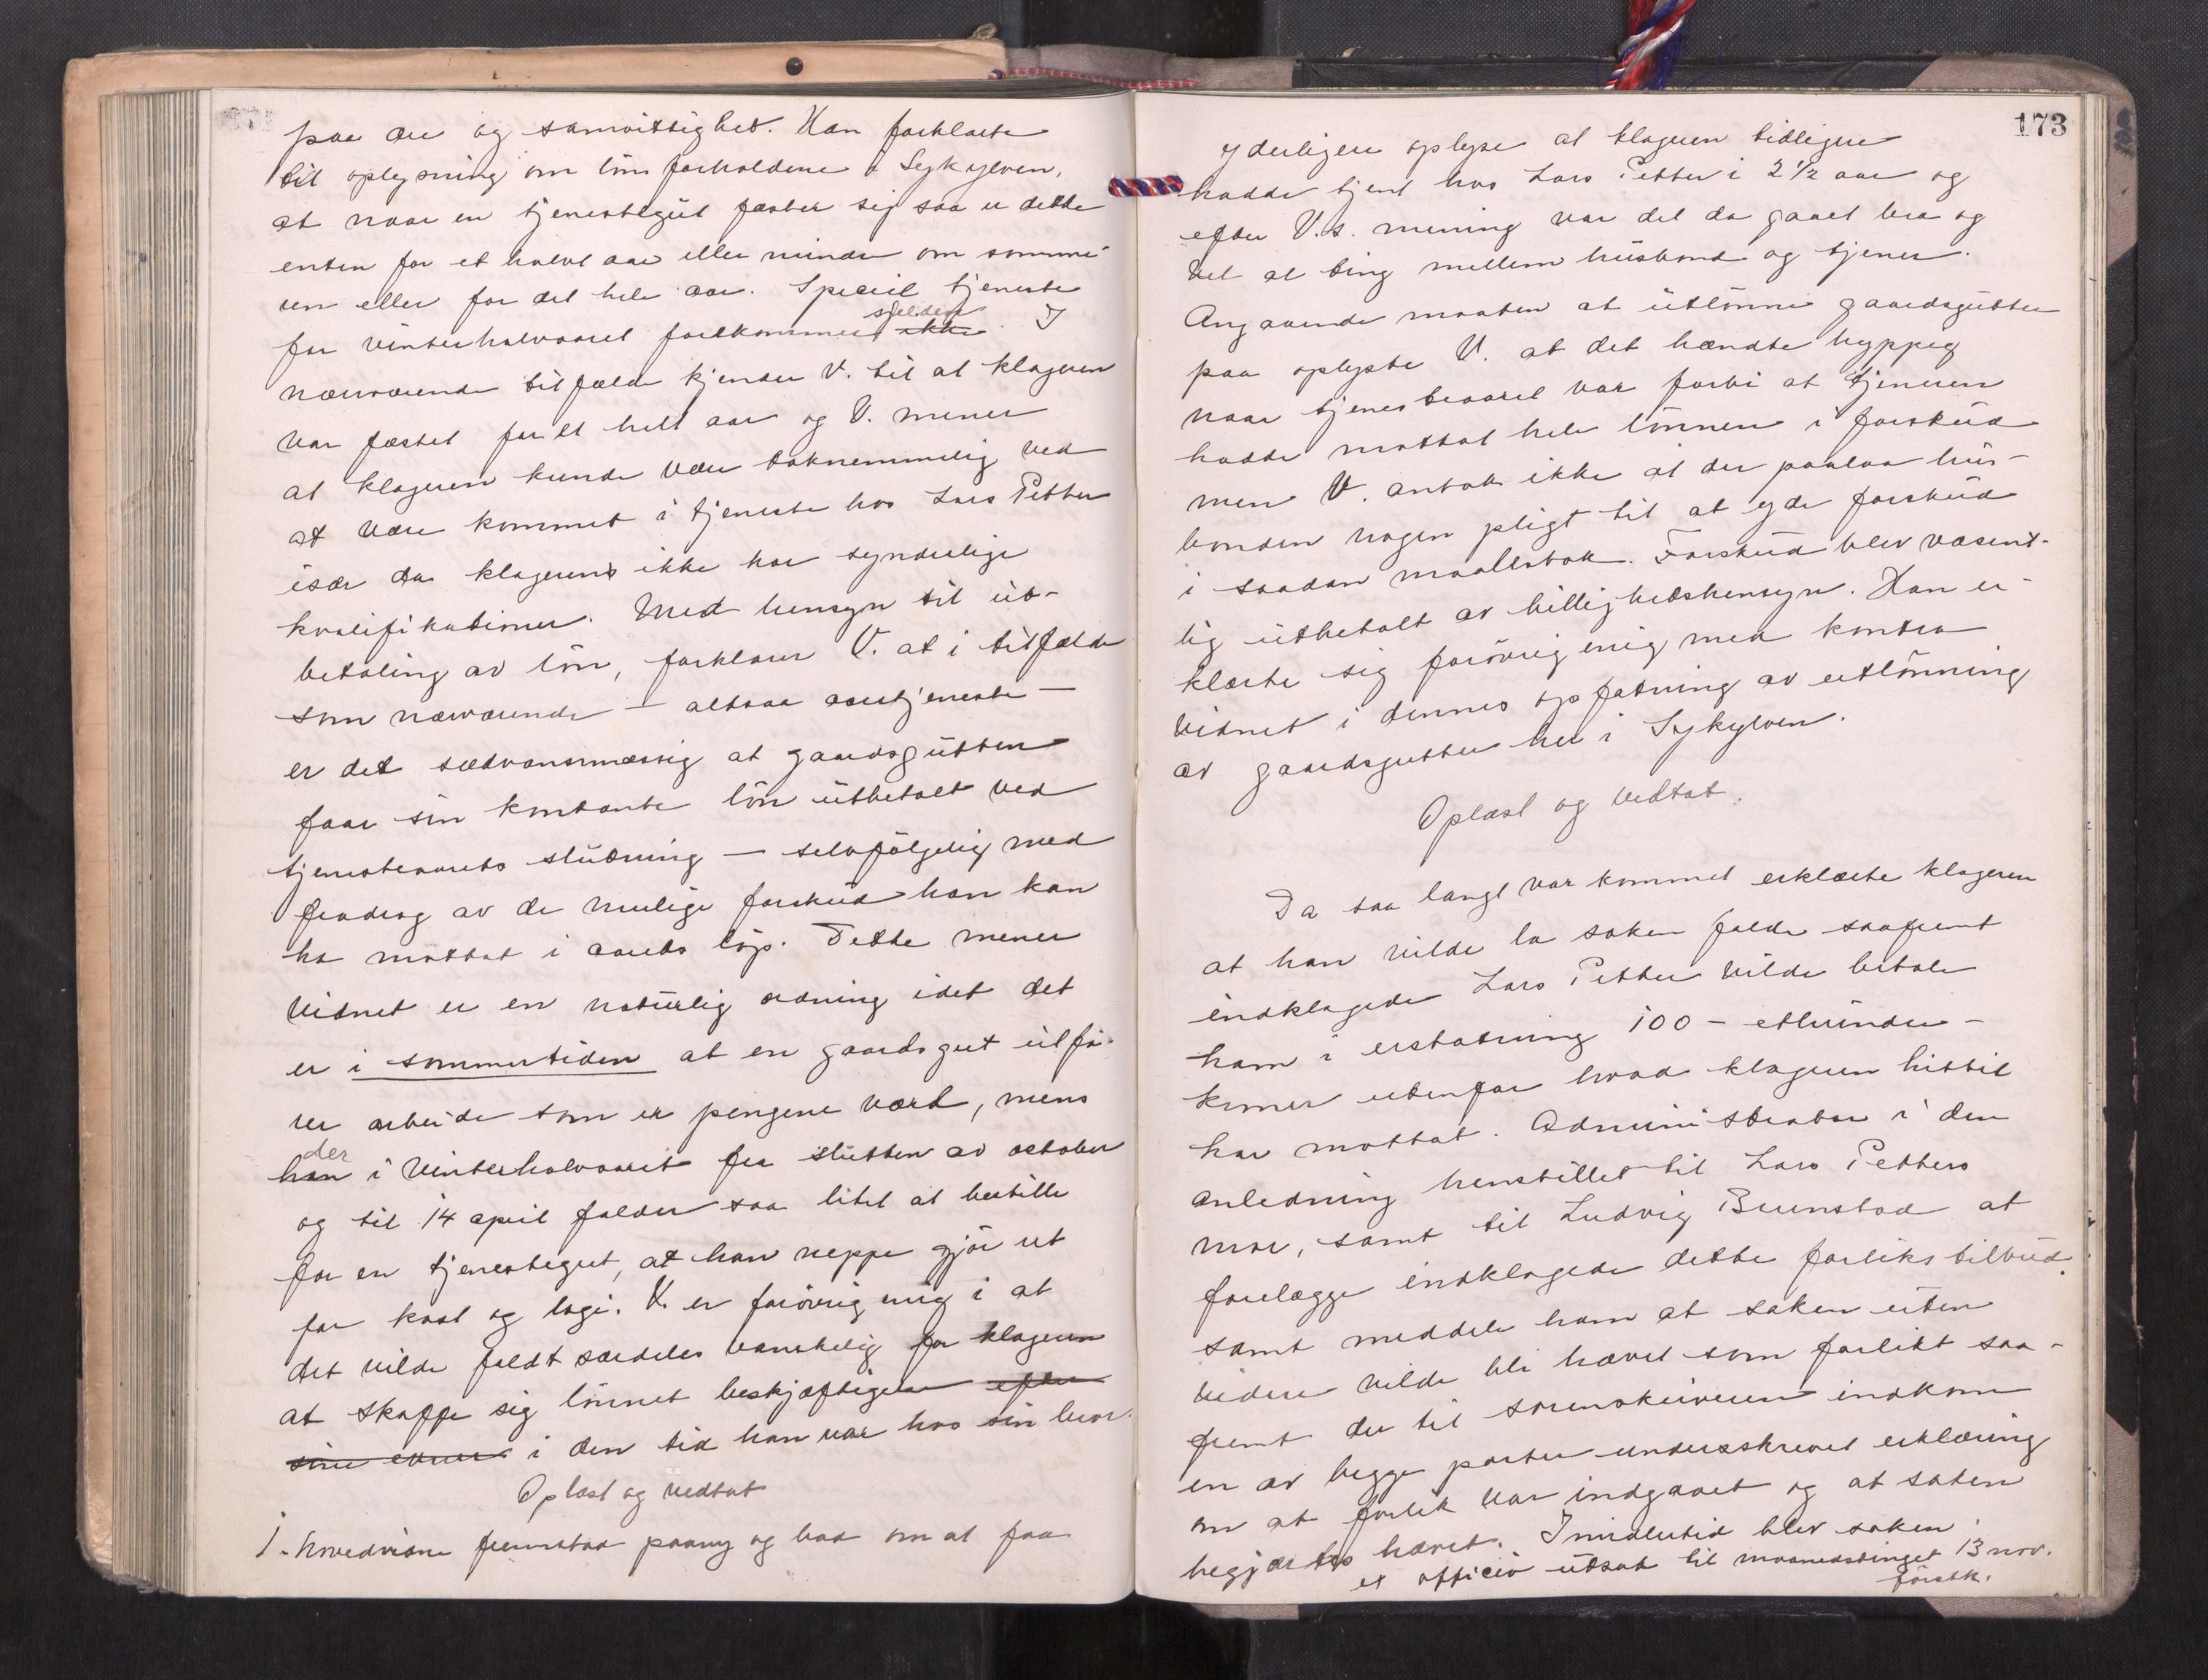 paa ære og samvittighet. Han forklarte
til oplysning om lönsforholdene i Sykylven,
at naar en tjenestegut fæster sig saa er dette
enten for et halvt aar eller mindre om somme-
ren eller for det hele aar. Speciel tjeneste
for vinterhalvaaret forekommer ikke sjelden. I
nærværende tilfælde kjender V. til at klageren
var fæstet for et helt aar og V. mener
at klageren kunde være taknemmelig ved
at være kommet i tjeneste hos Lars Petter
især da klageren ikke har synderlige
kvalifikationer. Med hensyn til ut-
betaling av lön, forklarer V. at i tilfælde
som nærværende – altsaa aarstjeneste –
er det sædvansmæssig at gaardsgutten
faar sin kontante lön utbetalt ved
tjenesteaarets slutning – selvfölgelig med
fradrag av de mulige forskud han kan
ha mottat i aarets löp. Dette mener
vidnet er en naturlig ordning idet det
er i sommertiden at en gaardsgut utfö-
rer arbeide som er pengene værd, mens
han der i vinterhalvaaret fra slutten av october
og til 14 april falder saa litet at bestille
for en tjenestegut, at han neppe gjör ut
for kost og logi. V. er forövrig enig i at
det vilde faldt særdeles vanskelig for klageren
at skaffe sig lönnet beskjæftigelse efter
sine evner i den tid han var hos sin bror.
Oplæst og vedtat
1. hovedvidne fremstod paany og bad om at faa
173
yderligere oplyse at klageren tidligere
hadde tjent hos Lars Petter i 2 1/2 aar og
efter V.s. mening var det da gaaet bra og
vel at ting mellem husbond og tjener.
Angaaende maaten at utlönne gaardsgutter
paa oplyste V. at det hændte hyppig
naar tjenesteaaret var forbi at tjeneren
hadde mottat hele lönnen i forskud
men V. antok ikke at der paalaa hus-
bonden nogen pligt til at yde forskud
i saadan maalestok. Forskud blev væsent-
lig utbetalt av billighetshensyn. Han er-
klærte sig forövrig enig med kontra
vidnet i dennes opfatning av utlönning
av gaardsgutter her i Sykylven.
Oplæst og vedtat.
Da saa langt var kommet erklærte klageren
at han vilde la saken falde saafremt
indklagede Lars Petter vilde betale
ham i erstatning 100 – ethundre –
kroner utenfor hvad klageren hittil
har mottat. Administrator i den
anledning henstillet til Lars Petters
mor, samt til Ludvig Brunstad at
forelægge indklagede dette forlikstilbud,
samt meddele ham at saken uten
videre vilde bli hævet som forlikt saa-
fremt der til sorenskriveren indkom
en av begge parter underskrevet erklæring
om at forlik var indgaaet og at saken
begjærtes hævet. Imidlertid blev saken
ex officio utsat til maanedstinget 13 nov.
förstk.